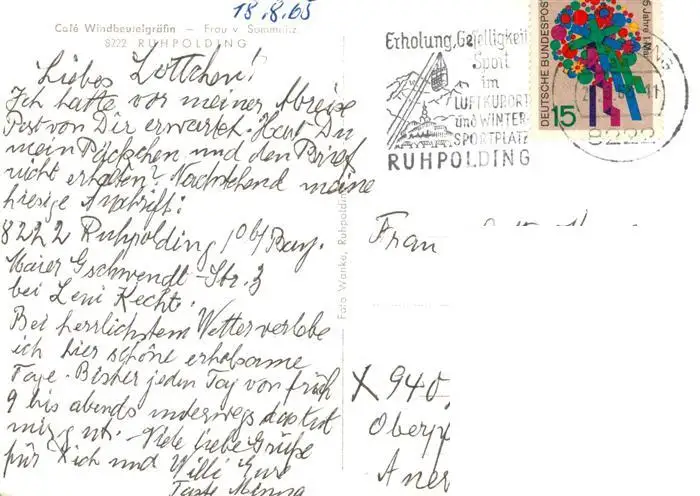 18.8.65
Café Windbeutelgräfin – Frau v. Sommnitz
8222 RUHPOLDING
Liebes Lottchen!
Ich hatte vor meiner Abreise
Post von Dir erwartet. Hast Du
mein Päckchen und den Brief
nicht erhalten? Nachstehend meine
hiesige Anschrift:
8222 Ruhpolding / Obb/Bay.
Maier Gschwendt-Str. 3
bei Leni Kecht.
Bei herrlichstem Wetter verlebe
ich hier schöne erholsame
Tage. Bisher jeden Tag von früh
9 bis abends unterwegs das tut
mir gut. Viele liebe Grüße
für Dich und Willi Eure
Tante Minna
Foto Wanke, Ruhpolding
Erholung, Geselligkeit
Sport
im
LUFTKURORT
und WINTER-
SPORTPLATZ
RUHPOLDING
DEUTSCHE BUNDESPOST
15
8222
Frau
X 940
Oberpf